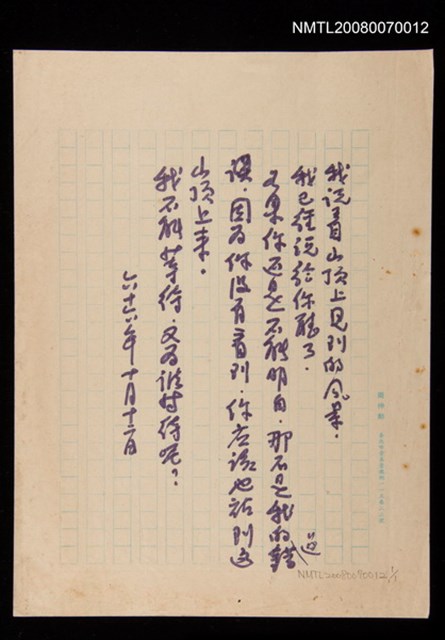 NMTL20080070012
我说着山顶上见到的风景.
我已经说给你听了.
如果你还是不能明白.那不是我的错
误.因为你没有看到.你应该也站到这
山顶上来.
我不能等待.又为谁
六十六年十月十二日
NMTL20080070012 1/1